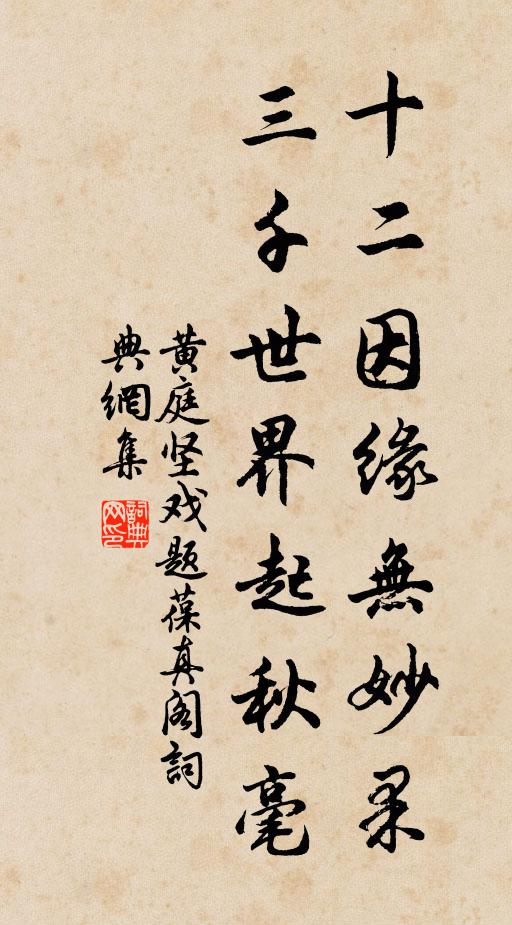 十二因緣無妙果
三千世界起秋毫
黄庭坚戏题葆真阁詞
典網集
詞典
网印